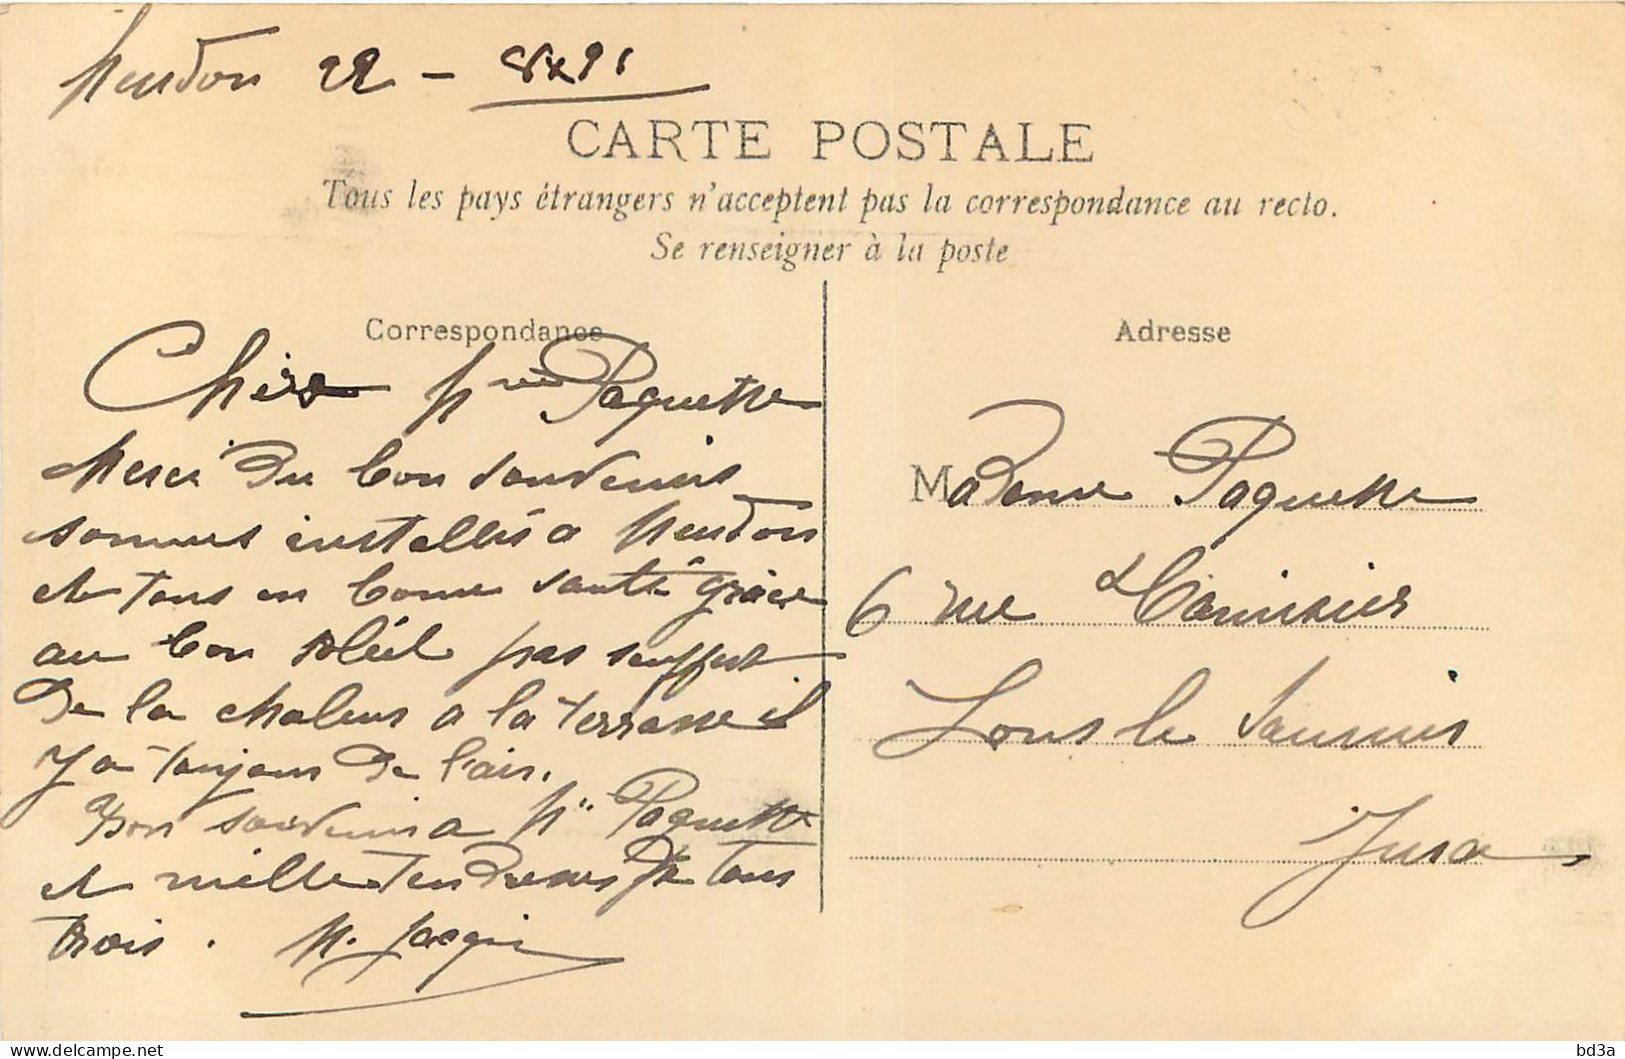 Meudon 22 -
CARTE POSTALE
Tous les pays étrangers n'acceptent pas la correspondance au recto.
Se renseigner à la poste
Correspondance
Chère Mme Paquette
Merci du bon souvenir
sommes installés a Meudon
et tous en bonne santé grâce
au bon soleil pas souffert
de la chaleur a la terrasse il
y a toujours de l'air.
Bon souvenir a Mr Paquette
et mille tendresses de tous
trois. M. Jacqui
Adresse
Madame Paquette
6 rue
Lons le Saunier
Jura
bd3a